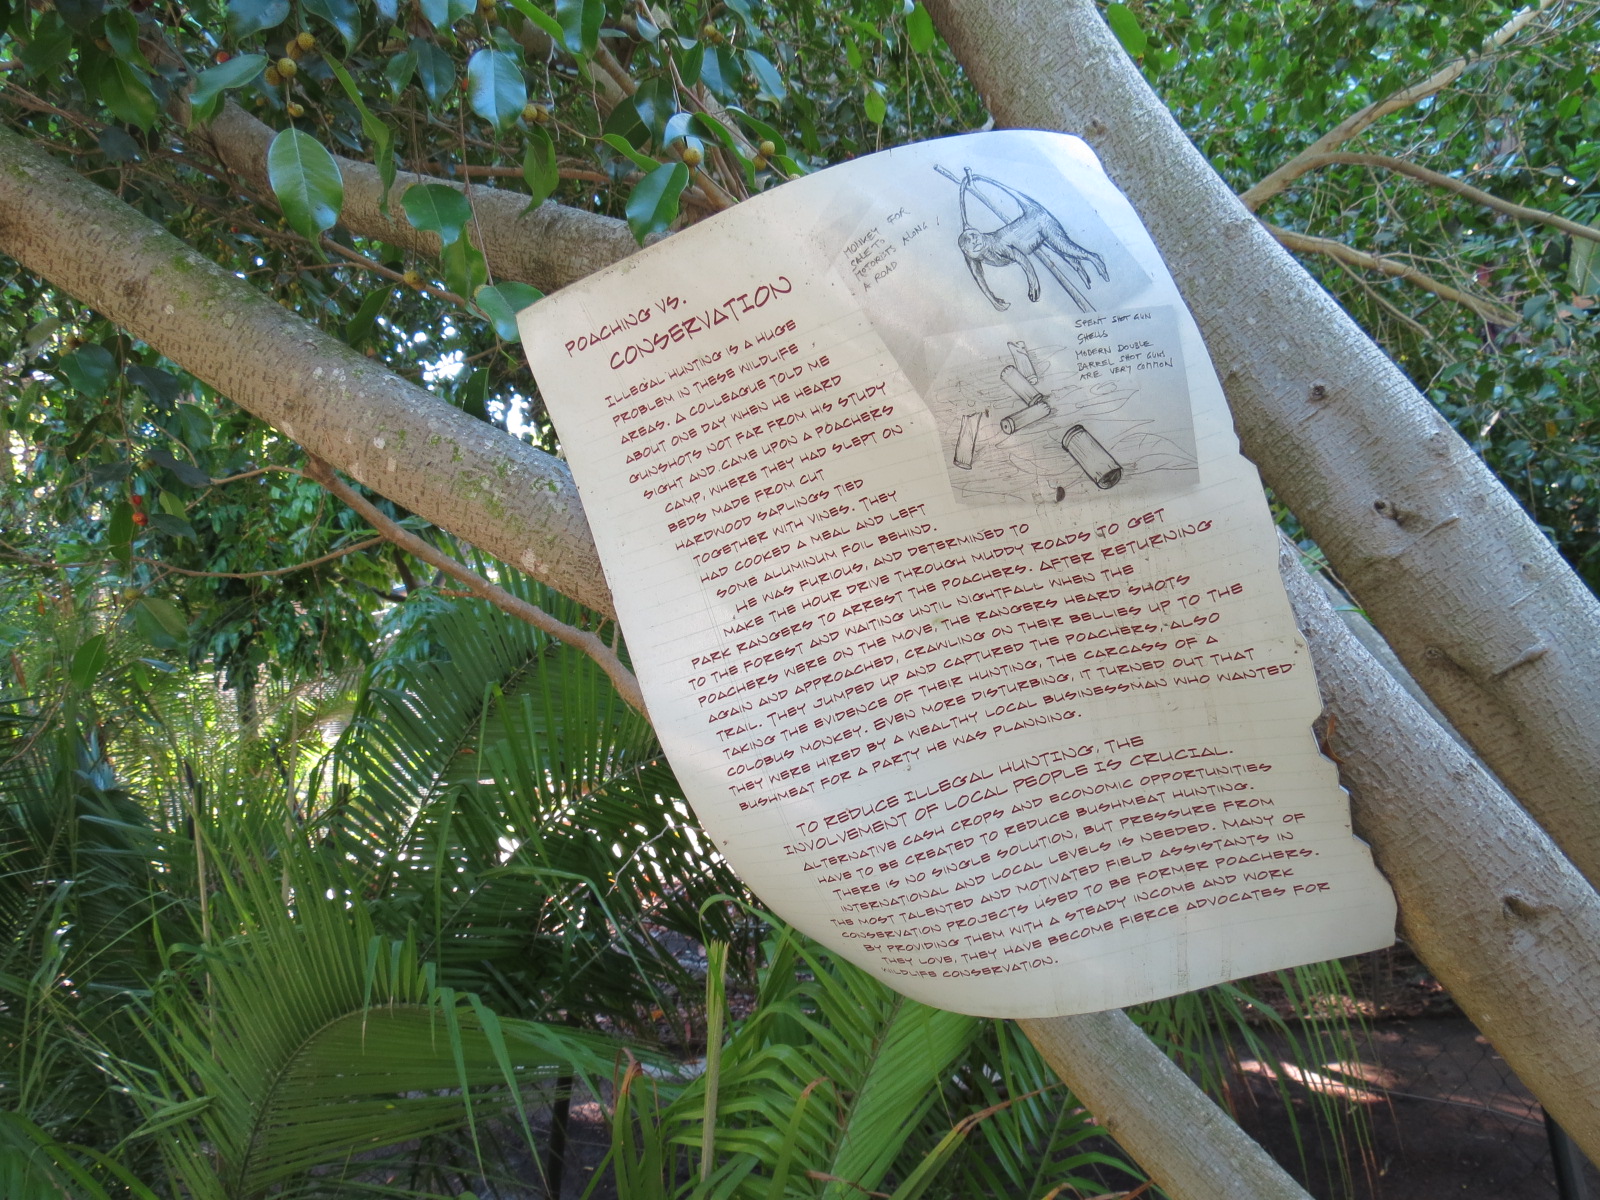 POACHING VS.
CONSERVATION
ILLEGAL HUNTING IS A HUGE
PROBLEM IN THESE WILDLIFE
AREAS. A COLLEAGUE TOLD ME
ABOUT ONE DAY WHEN HE HEARD
GUNSHOTS NOT FAR FROM HIS STUDY
SIGHT AND CAME UPON A POACHERS
CAMP, WHERE THEY HAD SLEPT ON
BEDS MADE FROM CUT
HARDWOOD SAPLINGS TIED
TOGETHER WITH VINES. THEY
HAD COOKED A MEAL AND LEFT
SOME ALUMINUM FOIL BEHIND.
HE WAS FURIOUS, AND DETERMINED TO
MAKE THE HOUR DRIVE THROUGH MUDDY ROADS TO GET
PARK RANGERS TO ARREST THE POACHERS. AFTER RETURNING
TO THE FOREST AND WAITING UNTIL NIGHTFALL WHEN THE
POACHERS WERE ON THE MOVE, THE RANGERS HEARD SHOTS
AGAIN AND APPROACHED, CRAWLING ON THEIR BELLIES UP TO THE
TRAIL. THEY JUMPED UP AND CAPTURED THE POACHERS, ALSO
TAKING THE EVIDENCE OF THEIR HUNTING, THE CARCASS OF A
COLOBUS MONKEY. EVEN MORE DISTURBING, IT TURNED OUT THAT
THEY WERE HIRED BY A WEALTHY LOCAL BUSINESSMAN WHO WANTED
BUSHMEAT FOR A PARTY HE WAS PLANNING.
TO REDUCE ILLEGAL HUNTING, THE
INVOLVEMENT OF LOCAL PEOPLE IS CRUCIAL.
ALTERNATIVE CASH CROPS AND ECONOMIC OPPORTUNITIES
HAVE TO BE CREATED TO REDUCE BUSHMEAT HUNTING.
THERE IS NO SINGLE SOLUTION, BUT PRESSURE FROM
INTERNATIONAL AND LOCAL LEVELS IS NEEDED. MANY OF
THE MOST TALENTED AND MOTIVATED FIELD ASSISTANTS IN
CONSERVATION PROJECTS USED TO BE FORMER POACHERS.
BY PROVIDING THEM WITH A STEADY INCOME AND WORK
THEY LOVE, THEY HAVE BECOME FIERCE ADVOCATES FOR
WILDLIFE CONSERVATION.
MONKEY FOR
SALE TO
MOTORISTS ALONG
A ROAD!
SPENT SHOT GUN
SHELLS
MODERN DOUBLE
BARREL SHOT GUNS
ARE VERY COMMON